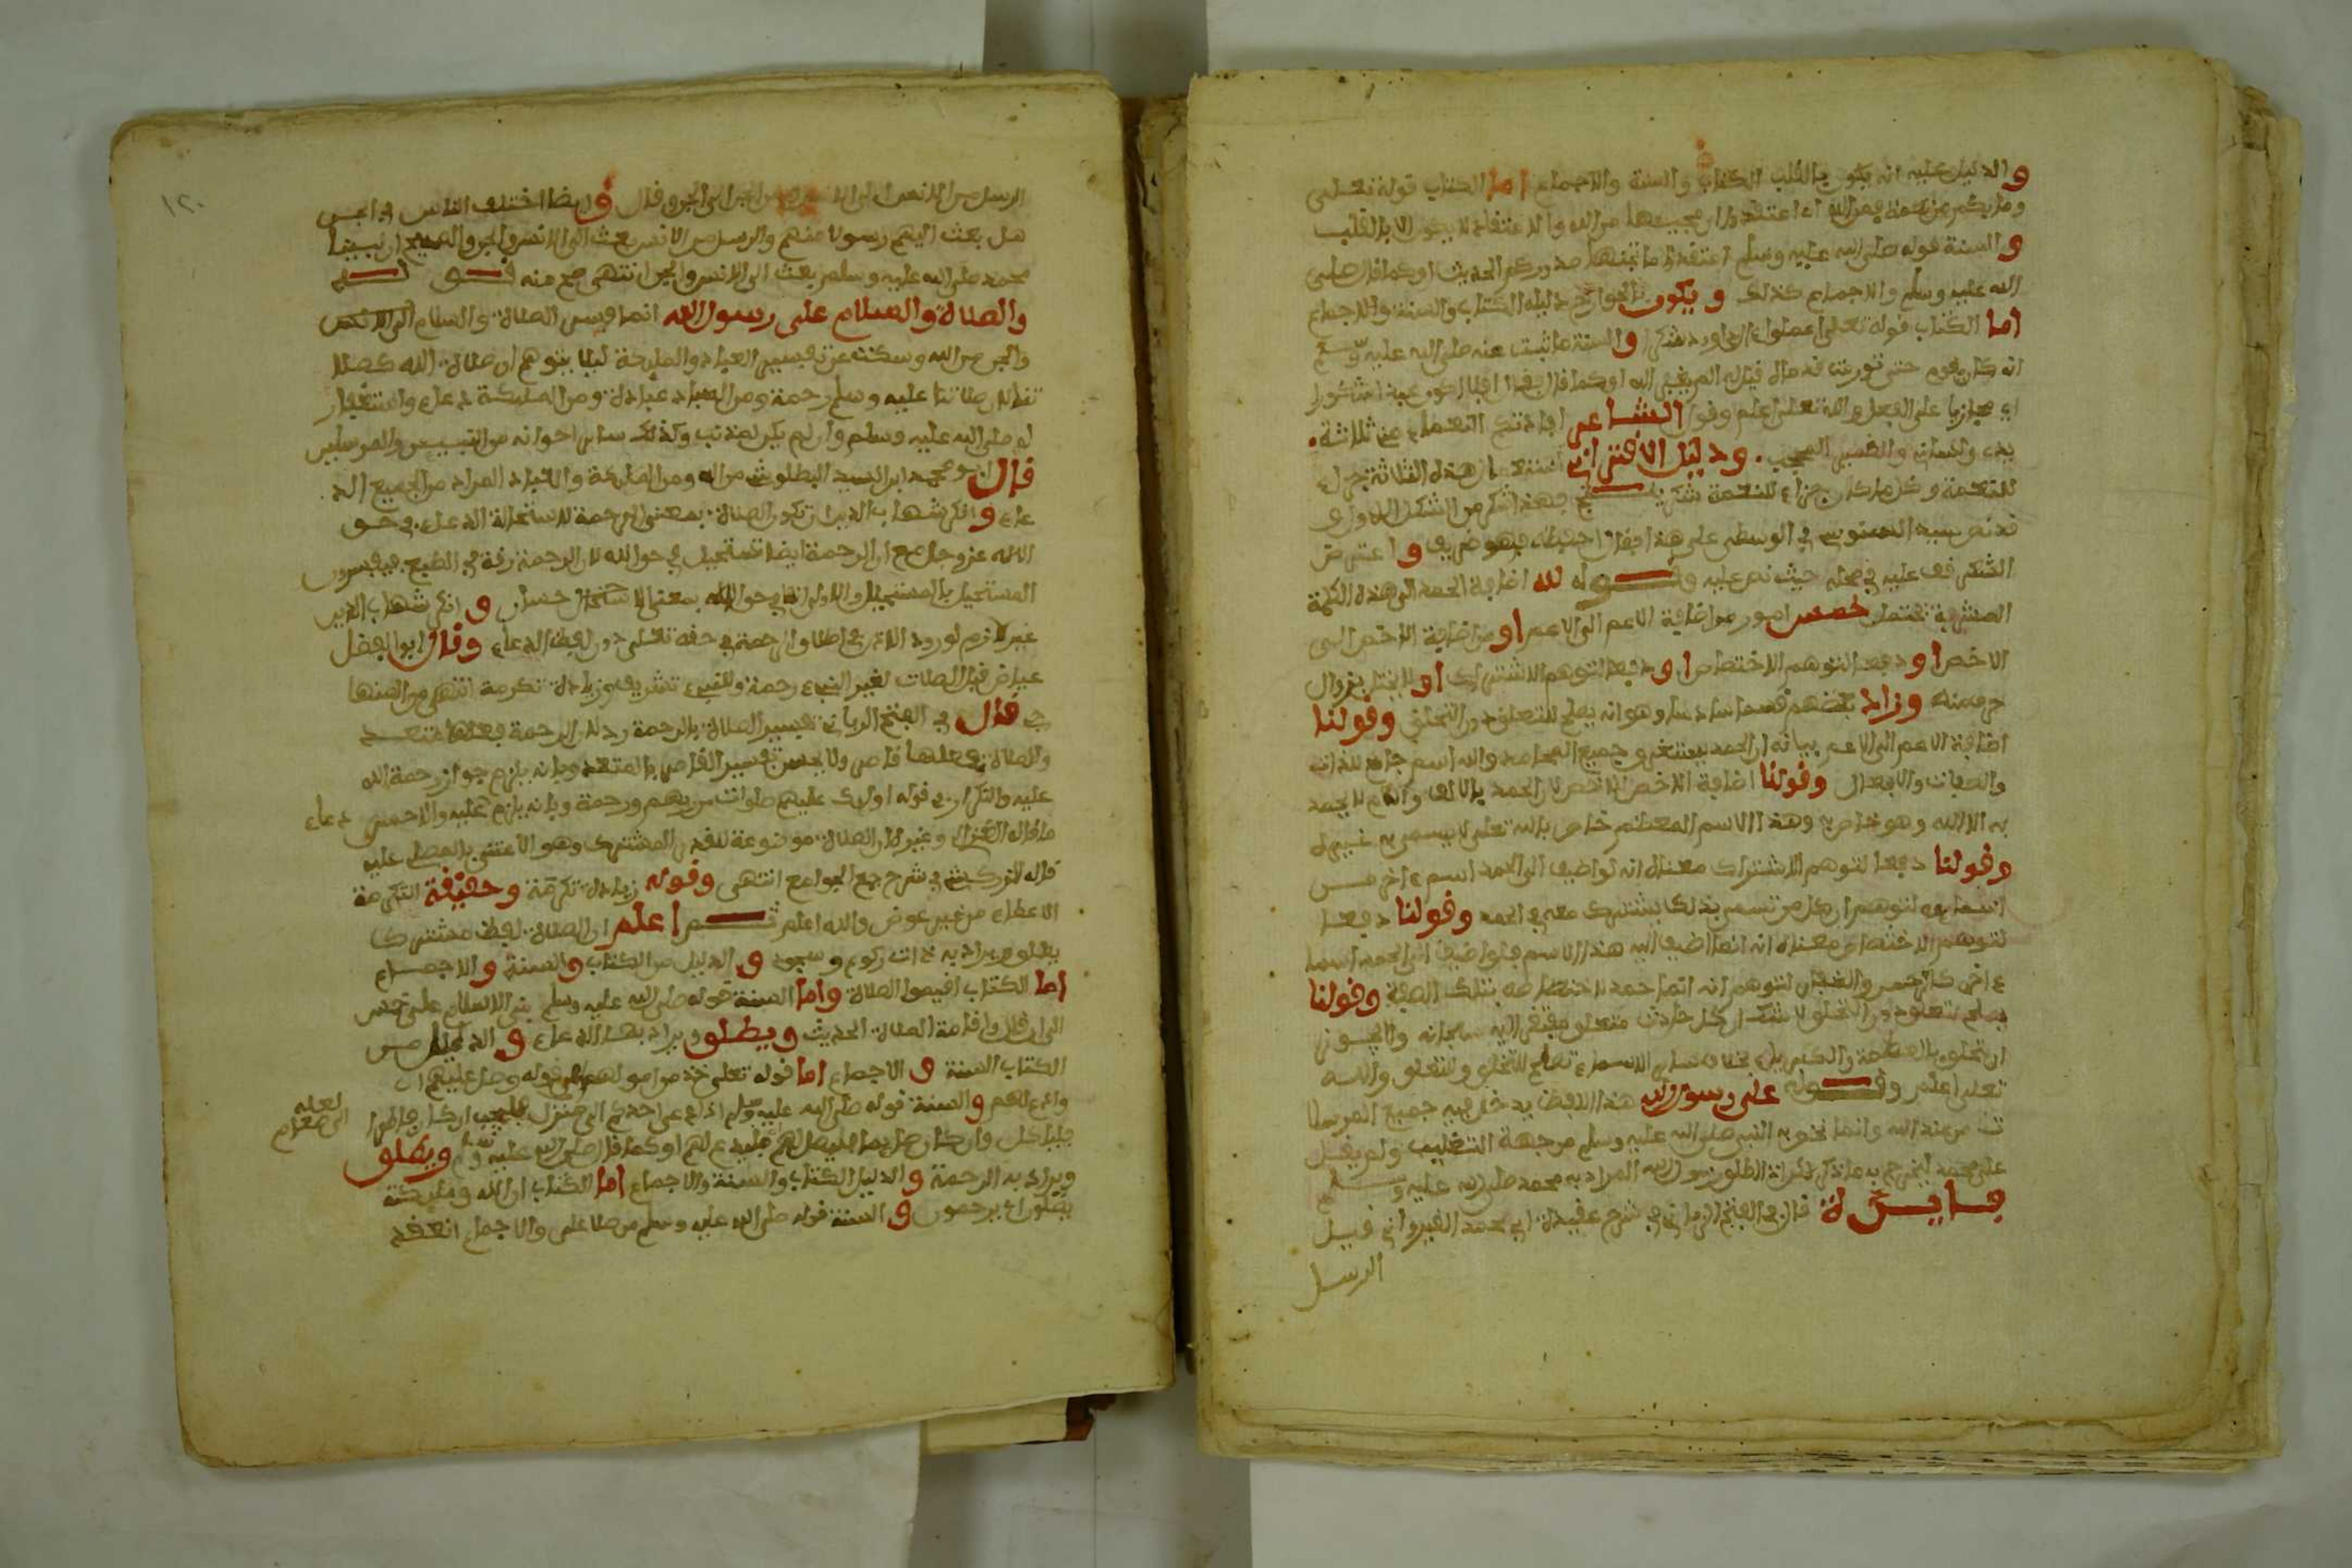 والدليل عليه انه يكون بالقلب الكتاب والسنة والاجماع اما الكتاب قوله تعلى
وما بكم من نعمة فمن الله اي اعتقدوا ان جميعها من الله والاعتقاد لا يكون الا بالقلب
والسنة قوله صلى الله عليه وسلم اعتقدوا ما تجنها صدوركم الحديث او كما قال صلى
الله عليه وسلم والاجماع كذلك ويكون بالجوارح دليله الكتاب والسنة والاجماع
اما الكتاب قوله تعلى اعملوا ءال داوود شكرا والسنة ما ثبت عنه صلى الله عليه وسلم
انه كان يقوم حتى تورمت قدماه قيل له الم يغفر الله او كما قال فقال افلا اكون عبدا شكورا
اي مجازيا على الفعل والله تعلى اعلم وقول الشاعر افادتكم النعماء مني ثلاثة
يدي ولساني والضمير المحجب ودليل الاقتراني استعمال هذه الثلاثة جزاء
للنعمة وكل ما كان جزاء للنعمة شكر ينتج فهذا شكر من الشكل الاول
قد نص سيد السنوسي في الوسطى على هذا فقال احفظه فهو ظريف واعترض
الشكر قف عليه في محله حيث نص عليه وقوله لله اضافة الحمد الى هذه الكلمة
المشرفة تحتمل خمس امور من اضافة الاعم الى الاعم او من اضافة الاخص الى
الاخص او دفعا لتوهم الاختصاص او دفعا لتوهم الاشتراك او لا يختل بزوال
حرف منه وزاد بعضهم قسما سادسا وهو انه يصلح للتعلق دون التخلق وقولنا
اضافة الاعم الى الاعم بيانه ان الحمد يستغرق جميع المحامد والله اسم جامع للذات
والصفات والافعال وقولنا اضافة الاخص للاخص لان الحمد بالالف واللام لا يحمد
به الا الله وهو خاص به وهذا الاسم المعظم خاص بالله تعلى لا يسمى به غيره
وقولنا دفعا لتوهم الاشتراك معناه انه لو اضيف الى الحمد اسم ءاخر من
اسمايه لتوهم ان كل من تسمى بذلك يشترك معه في الحمد وقولنا دفعا
لتوهم الاختصاص معناه انه انما اضيف اليه هذا الاسم فلو اضيف الى الحمد اسما
ءاخر كالرحمن والغفار لتوهم انه انما حمد لاختصاصه بتلك الصفة وقولنا
يصلح للتعلق دون التخلق لا شك ان كل حادث متعلق مفتقر اليه سبحانه ولا يجوز
ان يتخلق بالعظمة والكبرياء بخلاف ساير الاسماء تصلح للتخلق وللتعلق والله
تعلى اعلم وقوله على رسول الله هذا اللفظ يدخل فيه جميع المرسلا
ت من عند الله وانما نخص به النبي صلى الله عليه وسلم من جهة التغليب ولم يقل
على محمد ليخرج به ما ذكر لان اذا اطلق رسول الله المراد به محمد صلى الله عليه وسلم
فايدة قال في الفتح الرباني في شرح عقيدة ابي محمد القيرواني قيل
الرسل
الرسل من الانس الى الانس ومن الجن الى الجن وقال وايضا اختلف الناس في الجن
هل بعث اليهم رسولا منهم والرسل من الانس بعث الى الانس والجن والصحيح ان نبينا
محمد صلى الله عليه وسلم بعث الى الانس والجن انتهى صح منه قوله
والصلاة والسلام على رسول الله انما فسر الصلاة والسلام الى الانس
والجن من الله وسكت عن تفسير العباد والمليكة ليلا يتوهم ان صلاة الله كصلا
تنا لان صلاتنا عليه وسلم رحمة ومن العباد عبادة ومن المليكة دعاء واستغفار
له صلى الله عليه وسلم وان لم يكن له ذنب وكذلك ساير اخوانه من النبيين والمرسلين
قال ابو محمد ابن السيد البطلوشي من الله ومن المليكة والعباد المراد من الجميع الد
عاء وانكر شهاب الدين ان تكون الصلاة بمعنى الرحمة لاستحالة الدعاء في حق
الله عز وجل مع ان الرحمة ايضا تستحيل في حق الله لان الرحمة رقة في الطبع فيفسرون
المستحيل بالمستحيل والاولى انها في حق الله بمعنى الاحسان وانكر شهاب الدين
غير لازم لورود الاثر في اطلاق الرحمة في حقه تعلى دون لفظ الدعاء وقال ابو الفضل
عياض قيل الصلات لغير النبيء رحمة وللنبيء تشريف وزيادة تكرمة انتهى من المنها
ج قال في الفتح الرباني تفسير الصلاة بالرحمة رد لان الرحمة فعلها متعد
والصلاة فعلها قاصر ولا يحسن تفسير القاصر بالمتعدي وبانه يلزم جواز رحمة الله
عليه والتكرار في قوله اوليك عليهم صلوات من ربهم ورحمة وبانه يلزم عليه والاحسن دعاء
ما قاله الغزالي وغيره ان الصلاة موضوعة للقدر المشترك وهو الاعتناء بالمصلى عليه
قاله الزركشي في شرح جمع الجوامع انتهى وقوله زيادة تكرمة وحقيقة التكرمة
الاعطاء من غير عوض والله اعلم ثم اعلم ان الصلاة لفظ مشترك
يطلق ويراد به ذات ركوع وسجود والدليل من الكتاب والسنة والاجماع
اما الكتاب اقيموا الصلاة واما السنة قوله صلى الله عليه وسلم بني الاسلام على خمس
الى ان قال واقامة الصلاة الحديث ويطلق ويراد بها الدعاء والدليل من
الكتاب السنة والاجماع اما قوله تعلى خذ من اموالهم الى قوله وصل عليهم اي
وادع لهم والسنة قوله صلى الله عليه وسلم اذا دعي احدكم الى منزل فليجب ان كان فاطرا
لعله
الى طعام
فلياكل وان كان صايما فليصل لهم فليدع لهم او كما قال صلى الله عليه وسلم ويطلق
ويراد به الرحمة والدليل الكتاب والسنة والاجماع اما الكتاب ان الله ومليكته
يصلون اي يرحمون والسنة قوله صلى الله عليه وسلم من صلا علي والاجماع انعقد
١٢٠